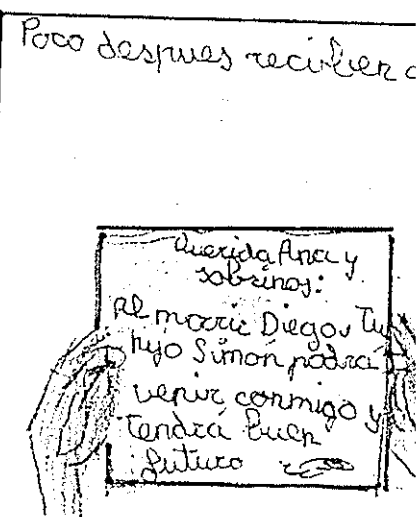 Poco despues reciben c
Querida Ana y
sobrinos:
Al morir Diego, Tu
hijo Simón podrá
venir conmigo y
Tendrá buen
futuro